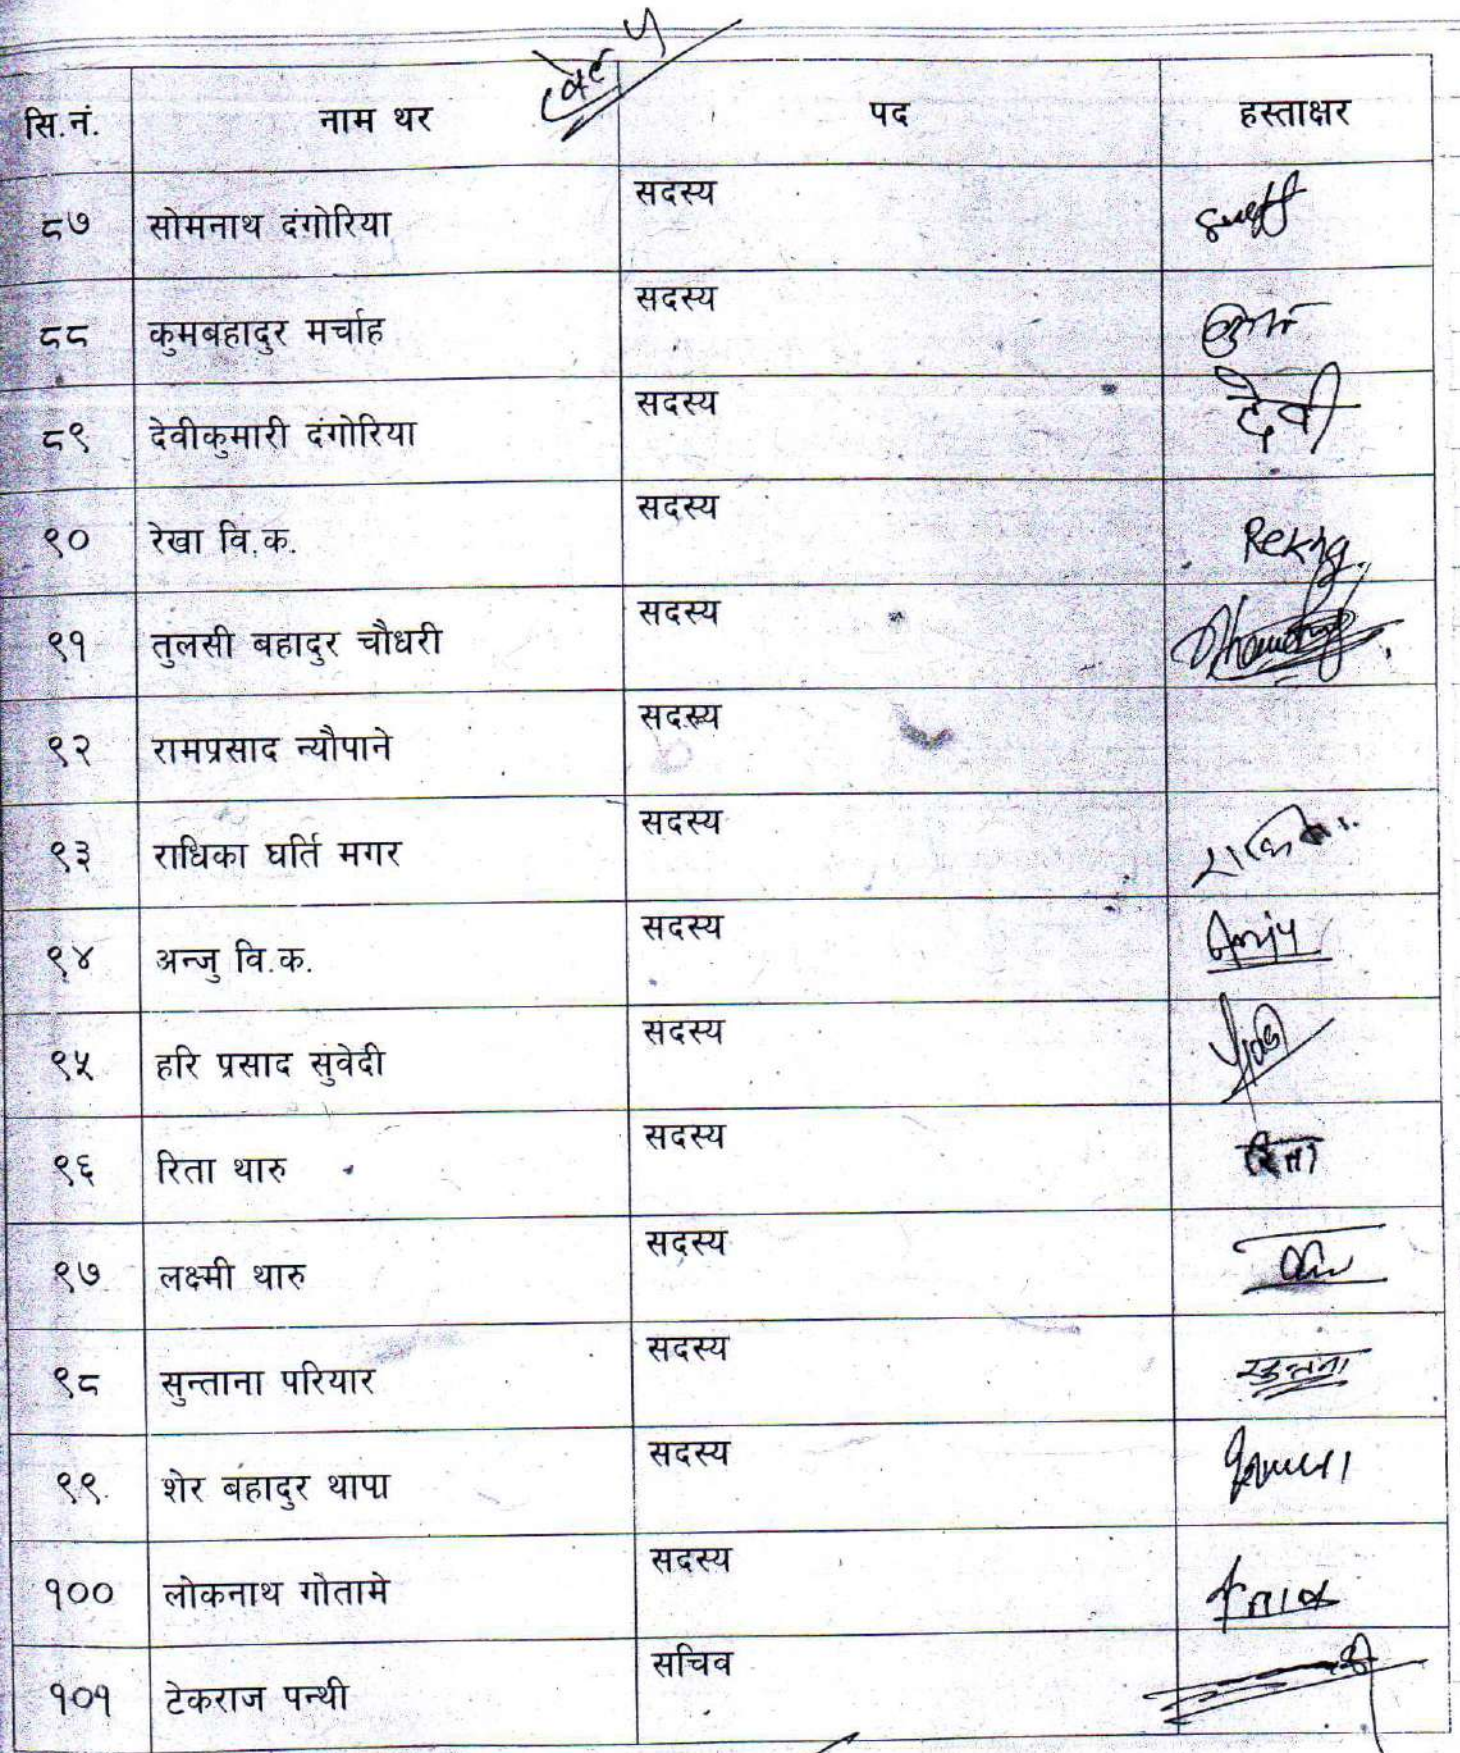 सि.नं. नाम थर पद हस्ताक्षर
८७ सोमनाथ दंगोरिया सदस्य
८८ कुमबहादुर मर्चाह सदस्य
८९ देवीकुमारी दंगोरिया सदस्य देवी
९० रेखा वि.क. सदस्य Rekha
९१ तुलसी बहादुर चौधरी सदस्य
९२ रामप्रसाद न्यौपाने सदस्य
९३ राधिका घर्ति मगर सदस्य
९४ अन्जु वि.क. सदस्य Anju
९५ हरि प्रसाद सुवेदी सदस्य
९६ रिता थारु सदस्य रिता
९७ लक्ष्मी थारु सदस्य
९८ सुन्ताना परियार सदस्य
९९ शेर बहादुर थापा सदस्य
१०० लोकनाथ गोतामे सदस्य
१०१ टेकराज पन्थी सचिव